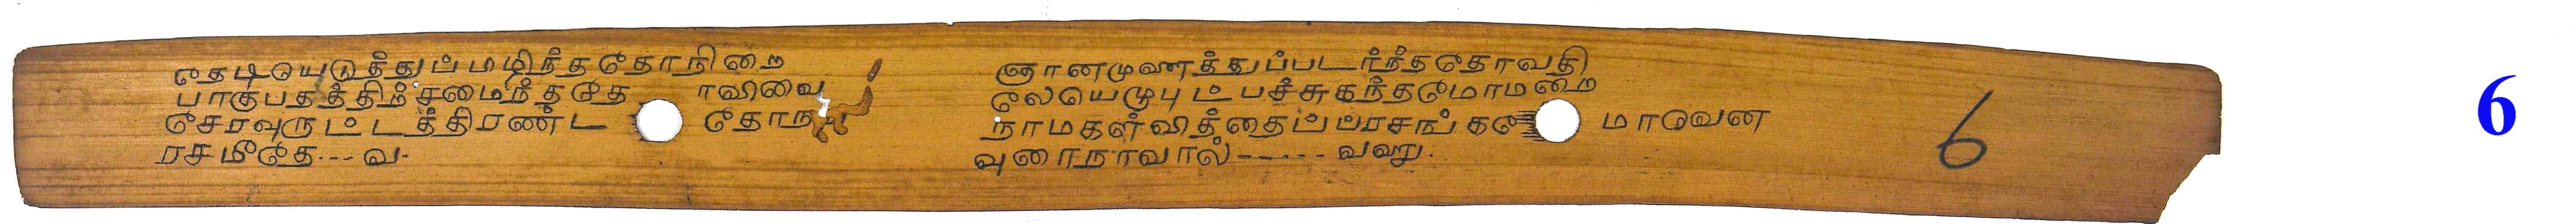 தேடியெடுத்துப்பழிந்ததோநிறை
பாகுபதத்திற்சமைந்ததே ாவிவை
சேரவுருட்டத்திரண்ட தோ
ரசமீதே---வ.
ஞானமுணத்துப்படர்ந்ததோவதி
லேயெழுபுட்பச்சுகந்தமோமறை
நாமகள்வித்தைப்பிரசங்க மாவென
வுரைநாவால்----- வஹு.
6
6